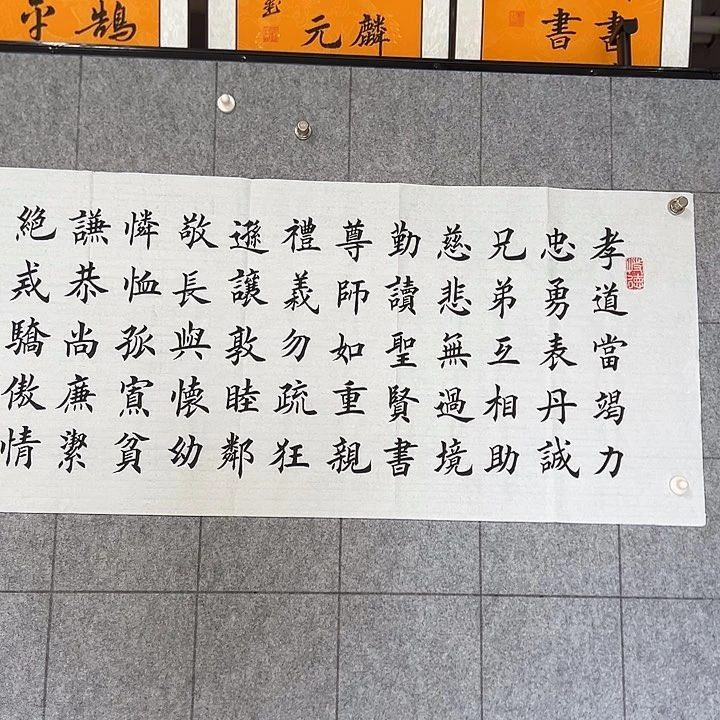 書
書
麟
元
鵠
孝道當竭力
忠勇表丹誠
兄弟互相助
慈悲無過境
勤讀聖賢書
尊師如重親
禮義勿疏狂
遜讓敦睦鄰
敬長與懷幼
憐恤孤寡貧
謙恭尚廉潔
絕戒驕傲情